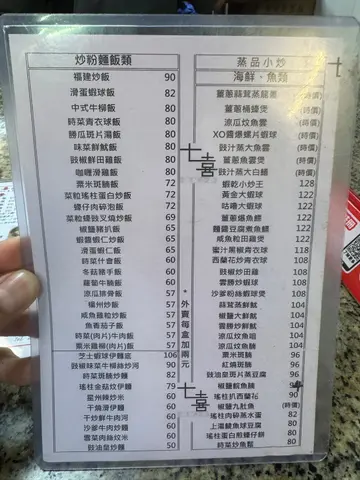 炒粉麵飯類
福建炒飯 90
滑蛋蝦球飯 82
中式牛柳飯 80
時菜青衣球飯 80
勝瓜斑片湯飯 80
味菜鮮魷飯 80
豉椒鮮田雞飯 80
咖喱滑雞飯 80
粟米斑腩飯 72
菜粒瑤柱蛋白炒飯 72
蠔仔肉碎泡飯 72
菜粒蠔豉叉燒炒飯 69
椒鹽豬扒飯 65
蝦醬蝦仁炒飯 65
滑蛋蝦仁飯 65
時菜什會飯 60
冬菇豬手飯 60
蘿蔔牛腩飯 60
涼瓜排骨飯 57
楊州炒飯 57
咸魚雞粒炒飯 57
魚香茄子飯 57
時菜(肉片)牛肉飯 57
粟米雞柳(肉片)飯 57
芝士蝦球伊麵底 106
豉椒味菜牛柳絲炒河 90
時菜斑腩炒麵 82
瑤柱金菇炆伊麵 79
星洲辣炒米 60
干燒滑伊麵 60
干炒鮮牛肉河 60
沙爹牛肉炒麵 60
雪菜肉絲炆米 60
豉油皇炒麵 50
*外賣每盒加兩元
七喜
七喜
蒸品小炒
海鮮·魚類
薑蔥桶蠔煲 (時價)
涼瓜炆魚雲 (時價)
XO醬爆螺片蝦球 (時價)
豉汁蒸大魚雲 (時價)
薑蔥魚雲煲 (時價)
豉汁蒸大白鱔 (時價)
蝦乾小炒王 128
黃金大蝦球 122
咕嚕大蝦球 122
薑蔥爆魚鰾 122
麵醬豆腐煮魚鰾 122
咸魚粒田雞煲 122
蜜汁黑椒青衣球 118
西蘭花炒青衣球 118
豉椒炒田雞 108
雲勝炒蝦球 108
沙爹粉絲蝦球煲 108
蒜茸蒸鮮魷 104
雲勝炒鮮魷 104
椒鹽鮮魷 104
涼瓜炆魚咀 104
涼瓜炆魚腩 104
粟米斑腩 96
紅燒斑腩 96
豉油皇斑片蒸豆腐 96
椒鹽鯇魚腩
瑤柱扒西蘭花 90
椒鹽九肚魚 90
瑤柱肉碎蒸水蛋 82
上湯鯪魚球豆苗 80
瑤柱蛋白煎蠔仔餅 80
時菜炒魚鬆 80